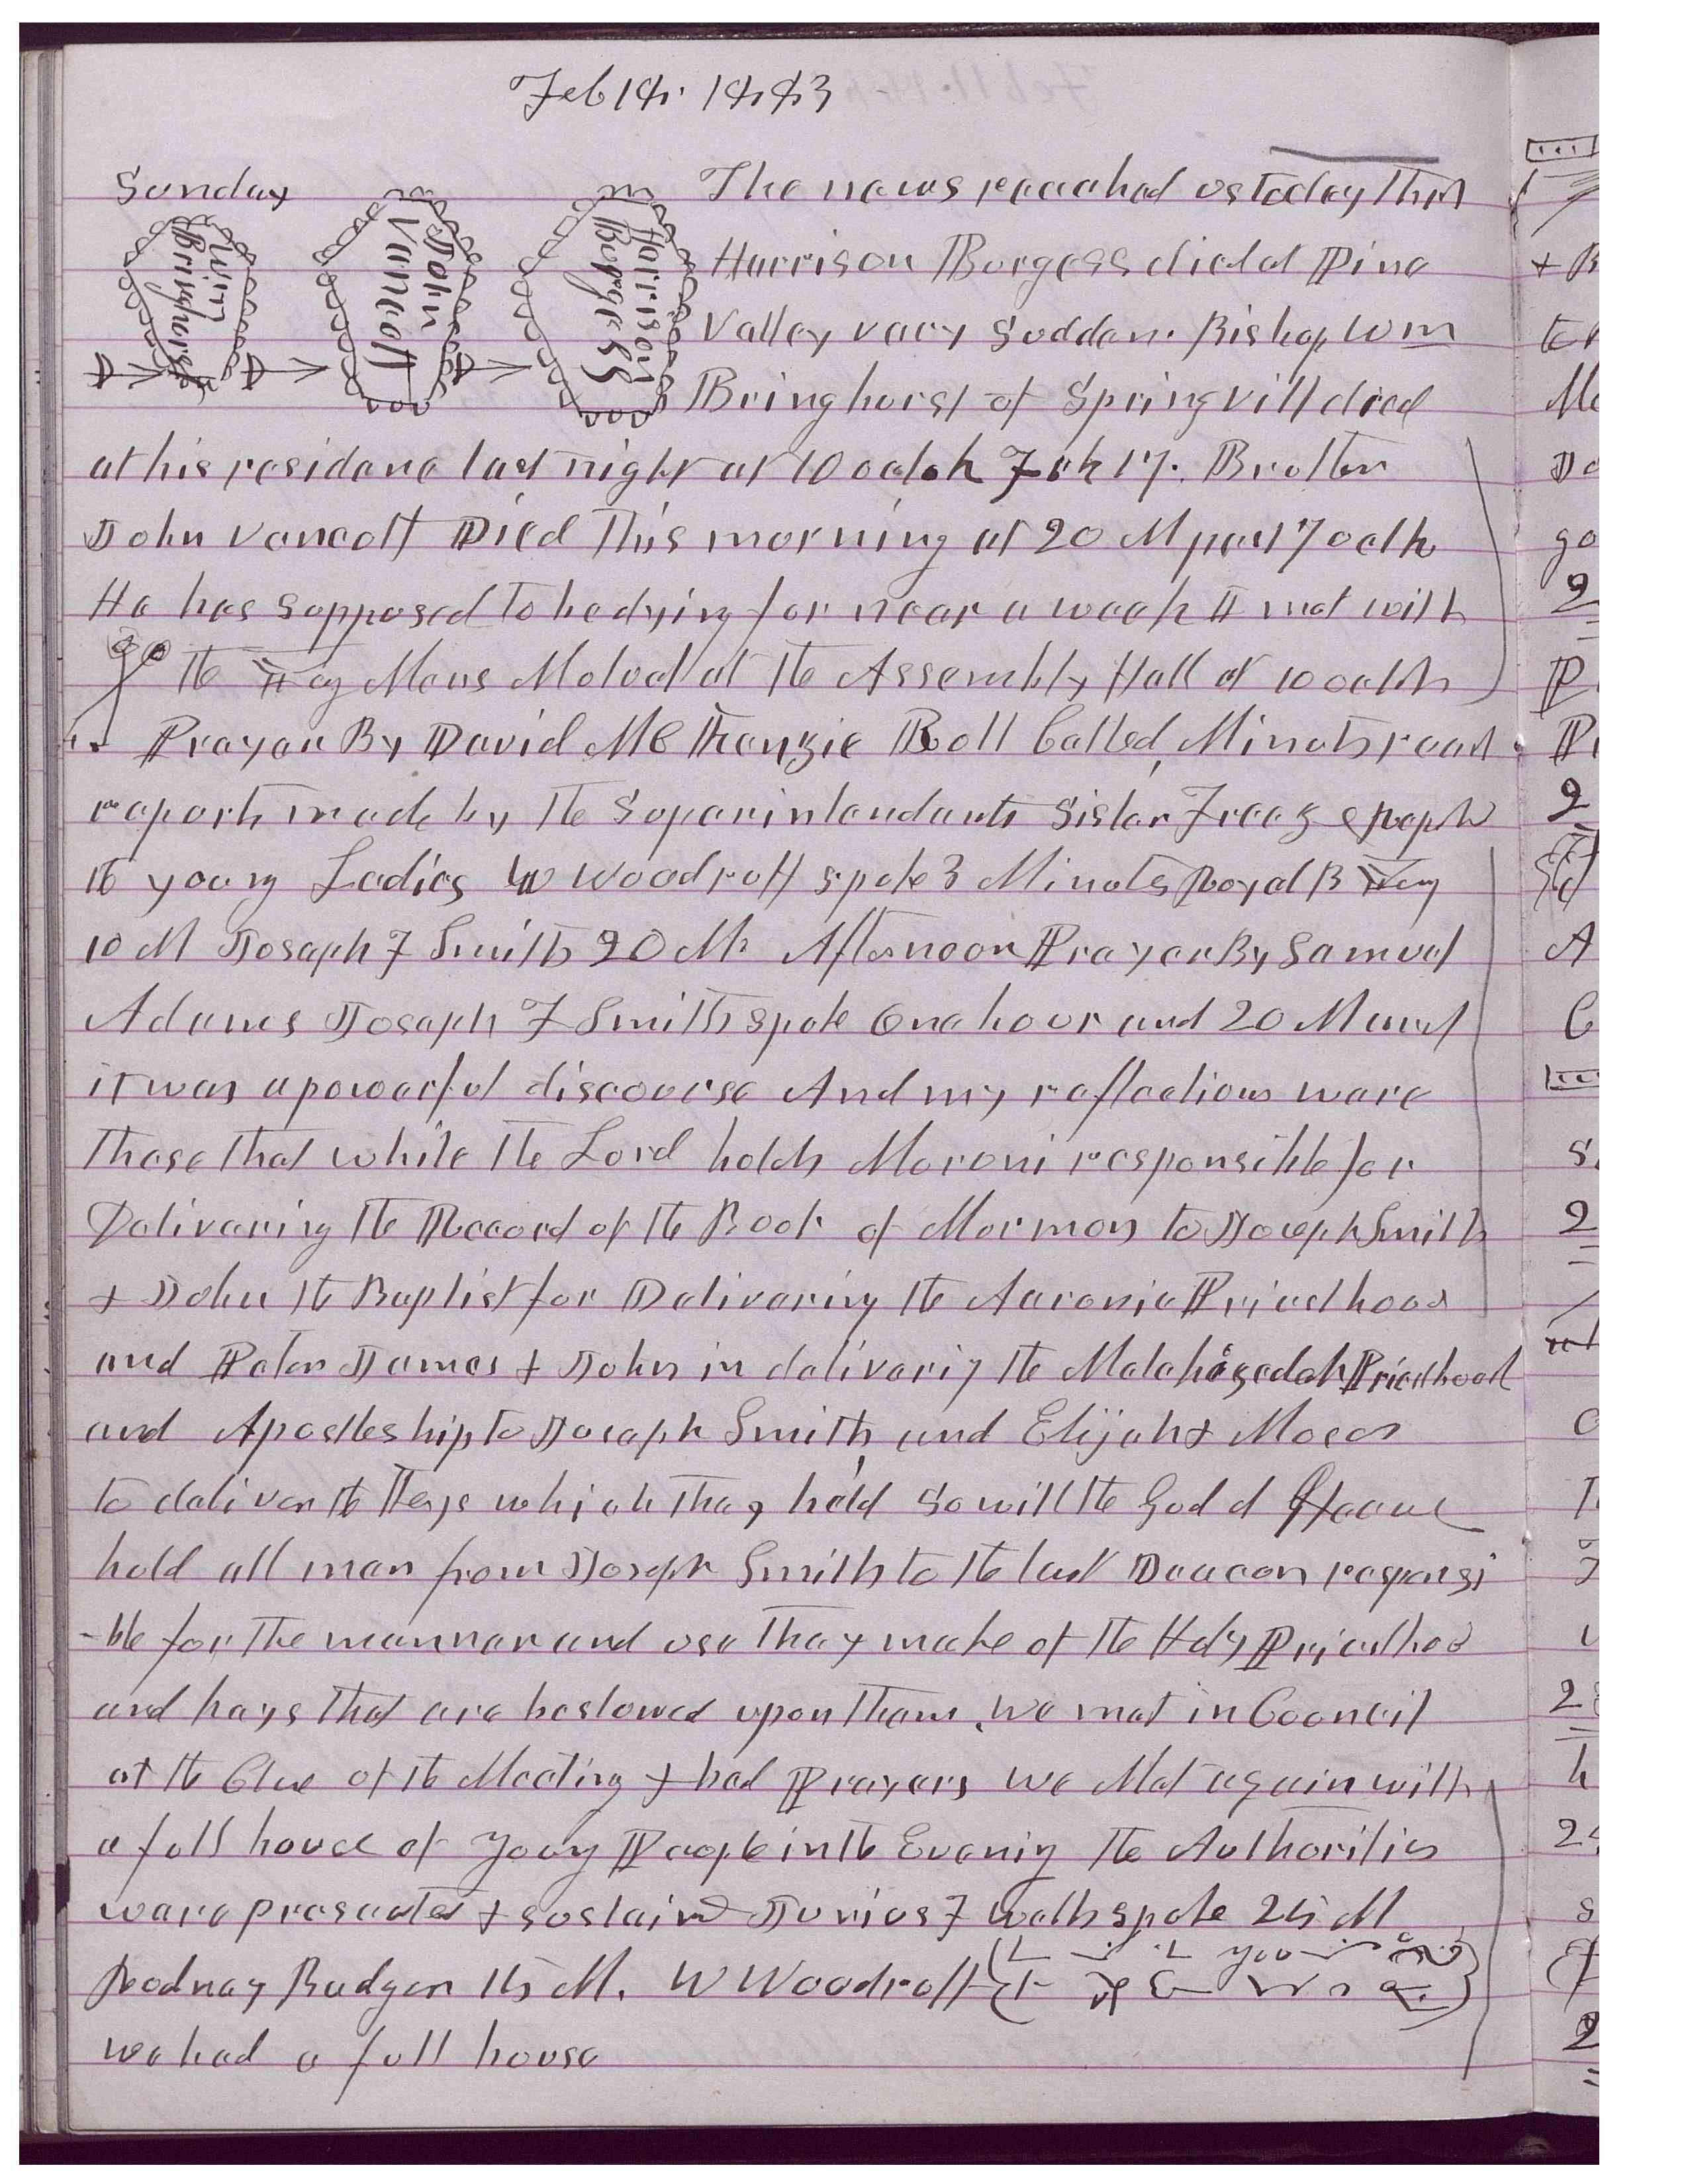 Feb 18. 1883
Sunday
Wm Bringhurst
John Vancott
Harrison Burgess
The news reached us today that
Harrison Burgess died at Pine
Valley very Sudden. Bishop Wm
Bringhurst of Springvill died
at his residence last night at 10 oclok Feb 17. Brother
John Vancott Died this morning at 20 M past 7 oclk
He has supposed to be dying for near a week I met with
the Yog Mens Mutual at the Assembly Hall at 10 oclk
Prayer By David McKenzie Roll Called, Minuts read
reports made by the Superintendants Sister Freeze
th young Ladies W Woodruff spoke 3 Minuts Royal B Young
10 M Joseph F Smith 20 M. Afternoon Prayer By Samuel
Adams Joseph F Smith spoke One hour and 20 M and
it was a powerful discourse And my reflections were
these that while the Lord holds Moroni responsible for
Delivering the Record of the Book of Mormon to Joseph Smith
+ John the Baptist for Delivering the Aaronic Priesthood
and Peter James + John in deliverig the Melchisedek Priesthood
and Apostleship to Joseph Smith and Elijah & Moses
to deliver the Keys which they held so will the God of Heave
hold all men from Joseph Smith to the last Deacon responsi
-ble for the manner and use they make of the Holy Priesthood
and keys that are bestowed upon them. we met in Council
at the Close of the Meeting + had Prayers We Met again with
a full house of Young People in the Evenig The Authorities
were presented + sustaind Junius F Wells spoke 25 M
Rodney Badger 15 M. W Woodruff you
we had a full house